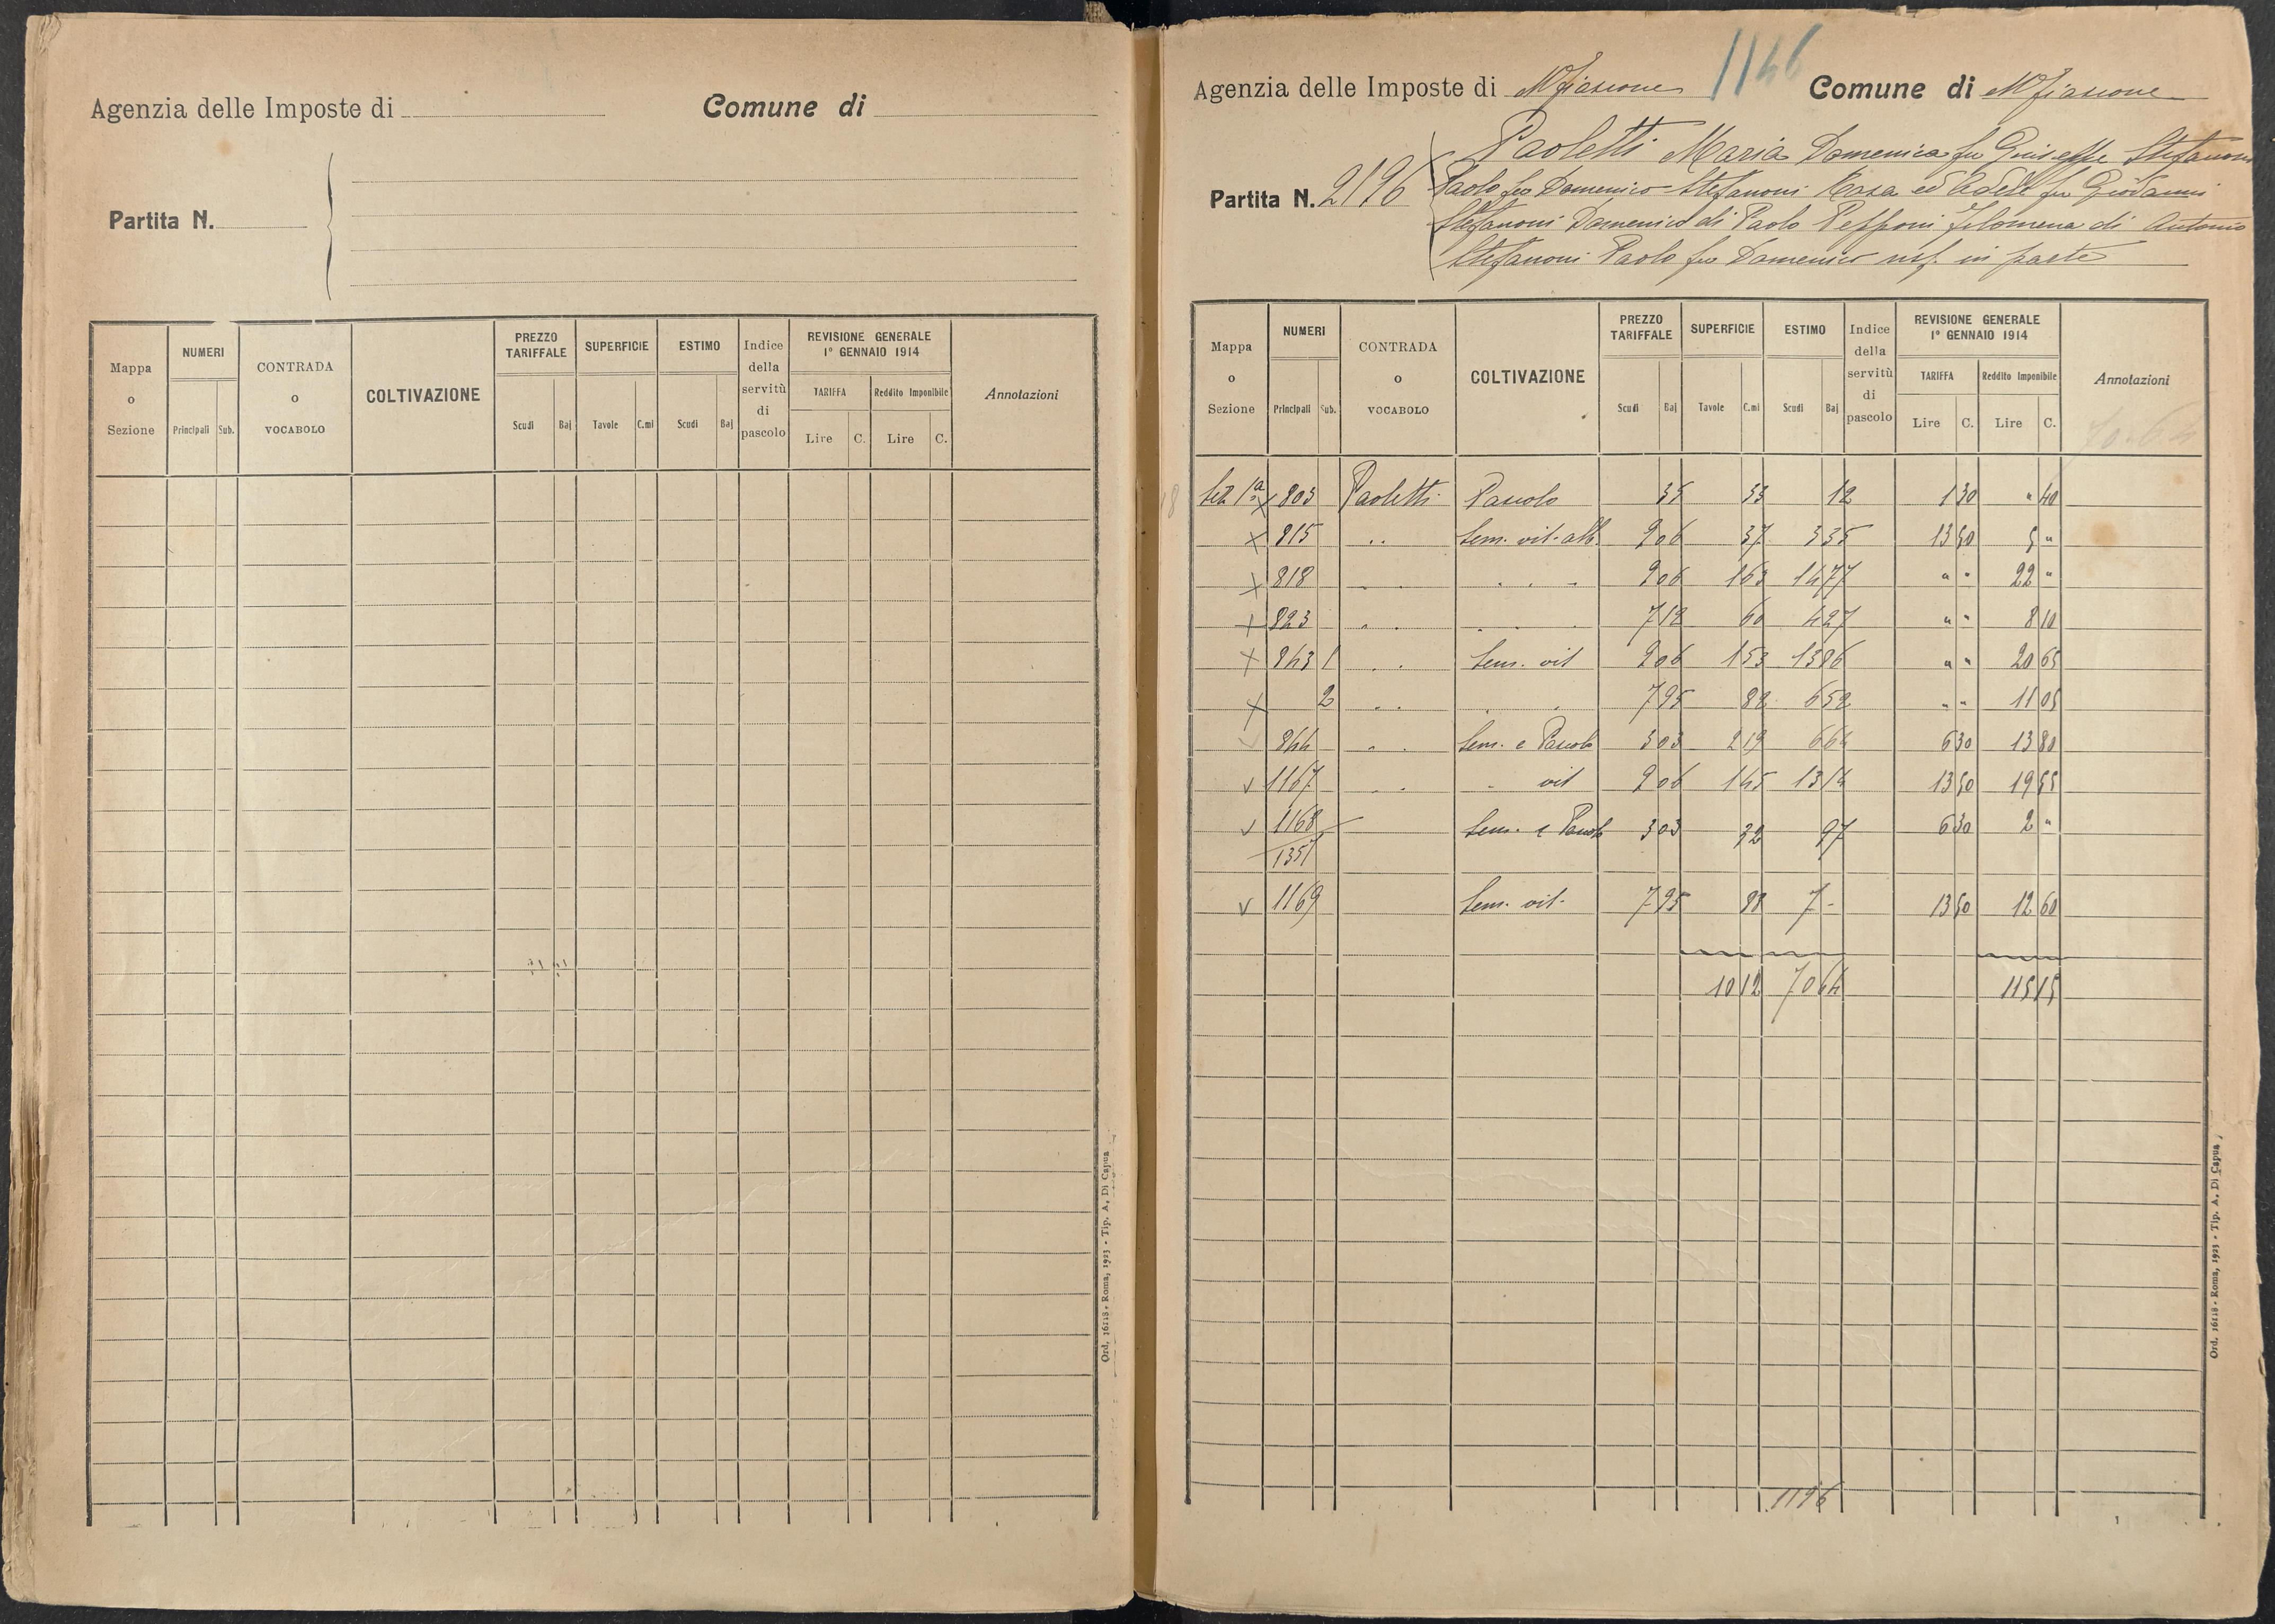 Agenzia delle Imposte di
Comune di
Partita N.
Mappa o Sezione
NUMERI
Principali Sub.
CONTRADA o VOCABOLO
COLTIVAZIONE
PREZZO TARIFFALE
Scudi Baj
SUPERFICIE
Tavole C.mi
ESTIMO
Scudi Baj
Indice della servitù di pascolo
REVISIONE GENERALE 1° GENNAIO 1914
TARIFFA Reddito Imponibile
Lire C. Lire C.
Annotazioni
Ord. 16118 - Roma, 1923 - Tip. A. Di Capua
1146
Agenzia delle Imposte di Mfiascone Comune di Mfiascone
Paoletti Maria Domenica fu Giuseppe Stefanoni
Partita N. 2196 Paolo fu Domenico Stefanoni Rosa ed fu Giovanni
Stefanoni Domenico di Paolo Pepponi Filomena di Antonio
Stefanoni Paolo fu Domenico usf. in parte
Mappa o Sezione
NUMERI
Principali Sub.
CONTRADA o VOCABOLO
COLTIVAZIONE
PREZZO TARIFFALE
Scudi Baj
SUPERFICIE
Tavole C.mi
ESTIMO
Scudi Baj
Indice della servitù di pascolo
REVISIONE GENERALE 1° GENNAIO 1914
TARIFFA Reddito Imponibile
Lire C. Lire C.
Annotazioni
70.64
Sez 1ª x 803 Paoletti Pascolo 35 33 12 1 30 " 40
x 815 .. Sem. vit. alb. 906 37 335 13 50 5 "
x 818 . . . . . 906 163 1477 " " 22 "
x 823 . . . . . 712 60 427 " " 8 10
x 843 1 . . Sem. vit 906 153 1386 " " 20 65
x 2 . . . . 795 82 652 " " 11 05
v 844 . . Sem. e Pascolo 303 219 664 6 30 13 80
v 1167 . . . vit 906 145 1314 13 50 19 55
v 1168/1351 Sem. e Pascolo 303 32 97 6 30 2 "
v 1169 Sem. vit. 795 88 7 - 13 50 12 60
10 12 70 64 115 15
1196
Ord. 16118 - Roma, 1923 - Tip. A. Di Capua